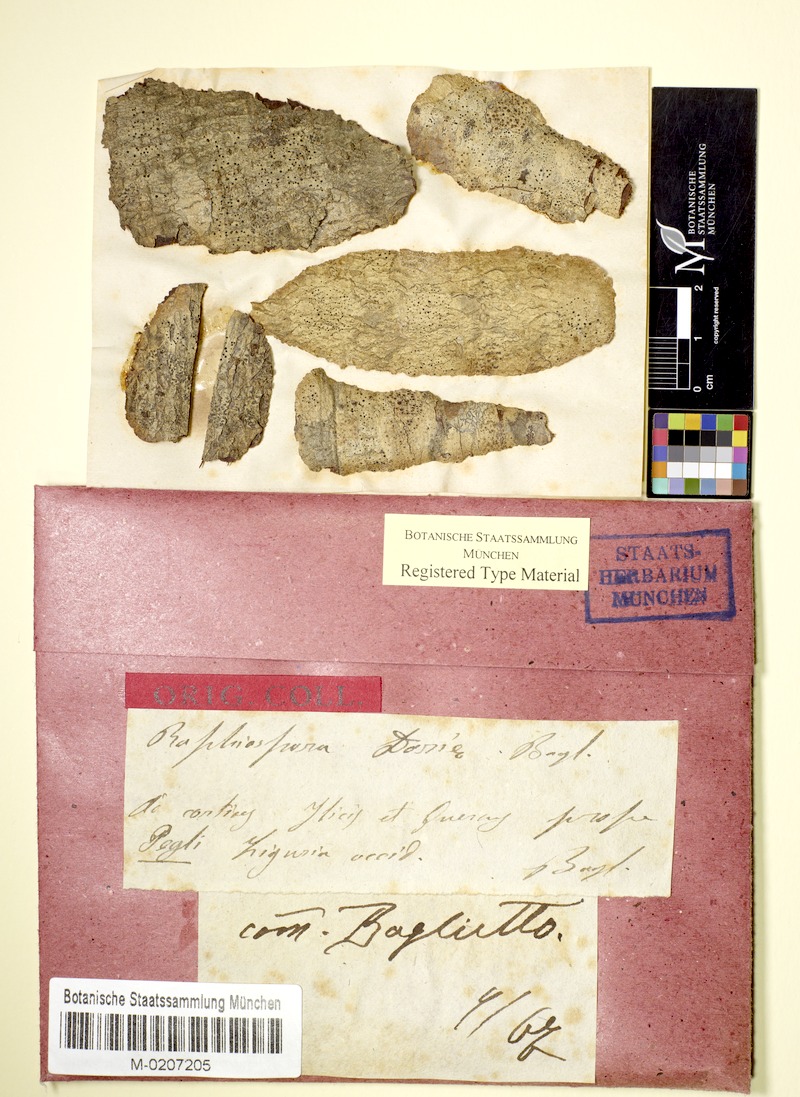 BOTANISCHE
STAATSSAMMLUNG
MÜNCHEN
M
0 1 2
cm
copyright reserved
BOTANISCHE STAATSSAMMLUNG
MÜNCHEN
Registered Type Material
STAATS-
HERBARIUM
MÜNCHEN
ORIG. COLL.
Raphiospora Doriæ. Bagl.
Ilicis et Quercus prope
Pegli Liguria occid. Bagl.
com̄. Baglietto.
Botanische Staatssammlung München
M-0207205